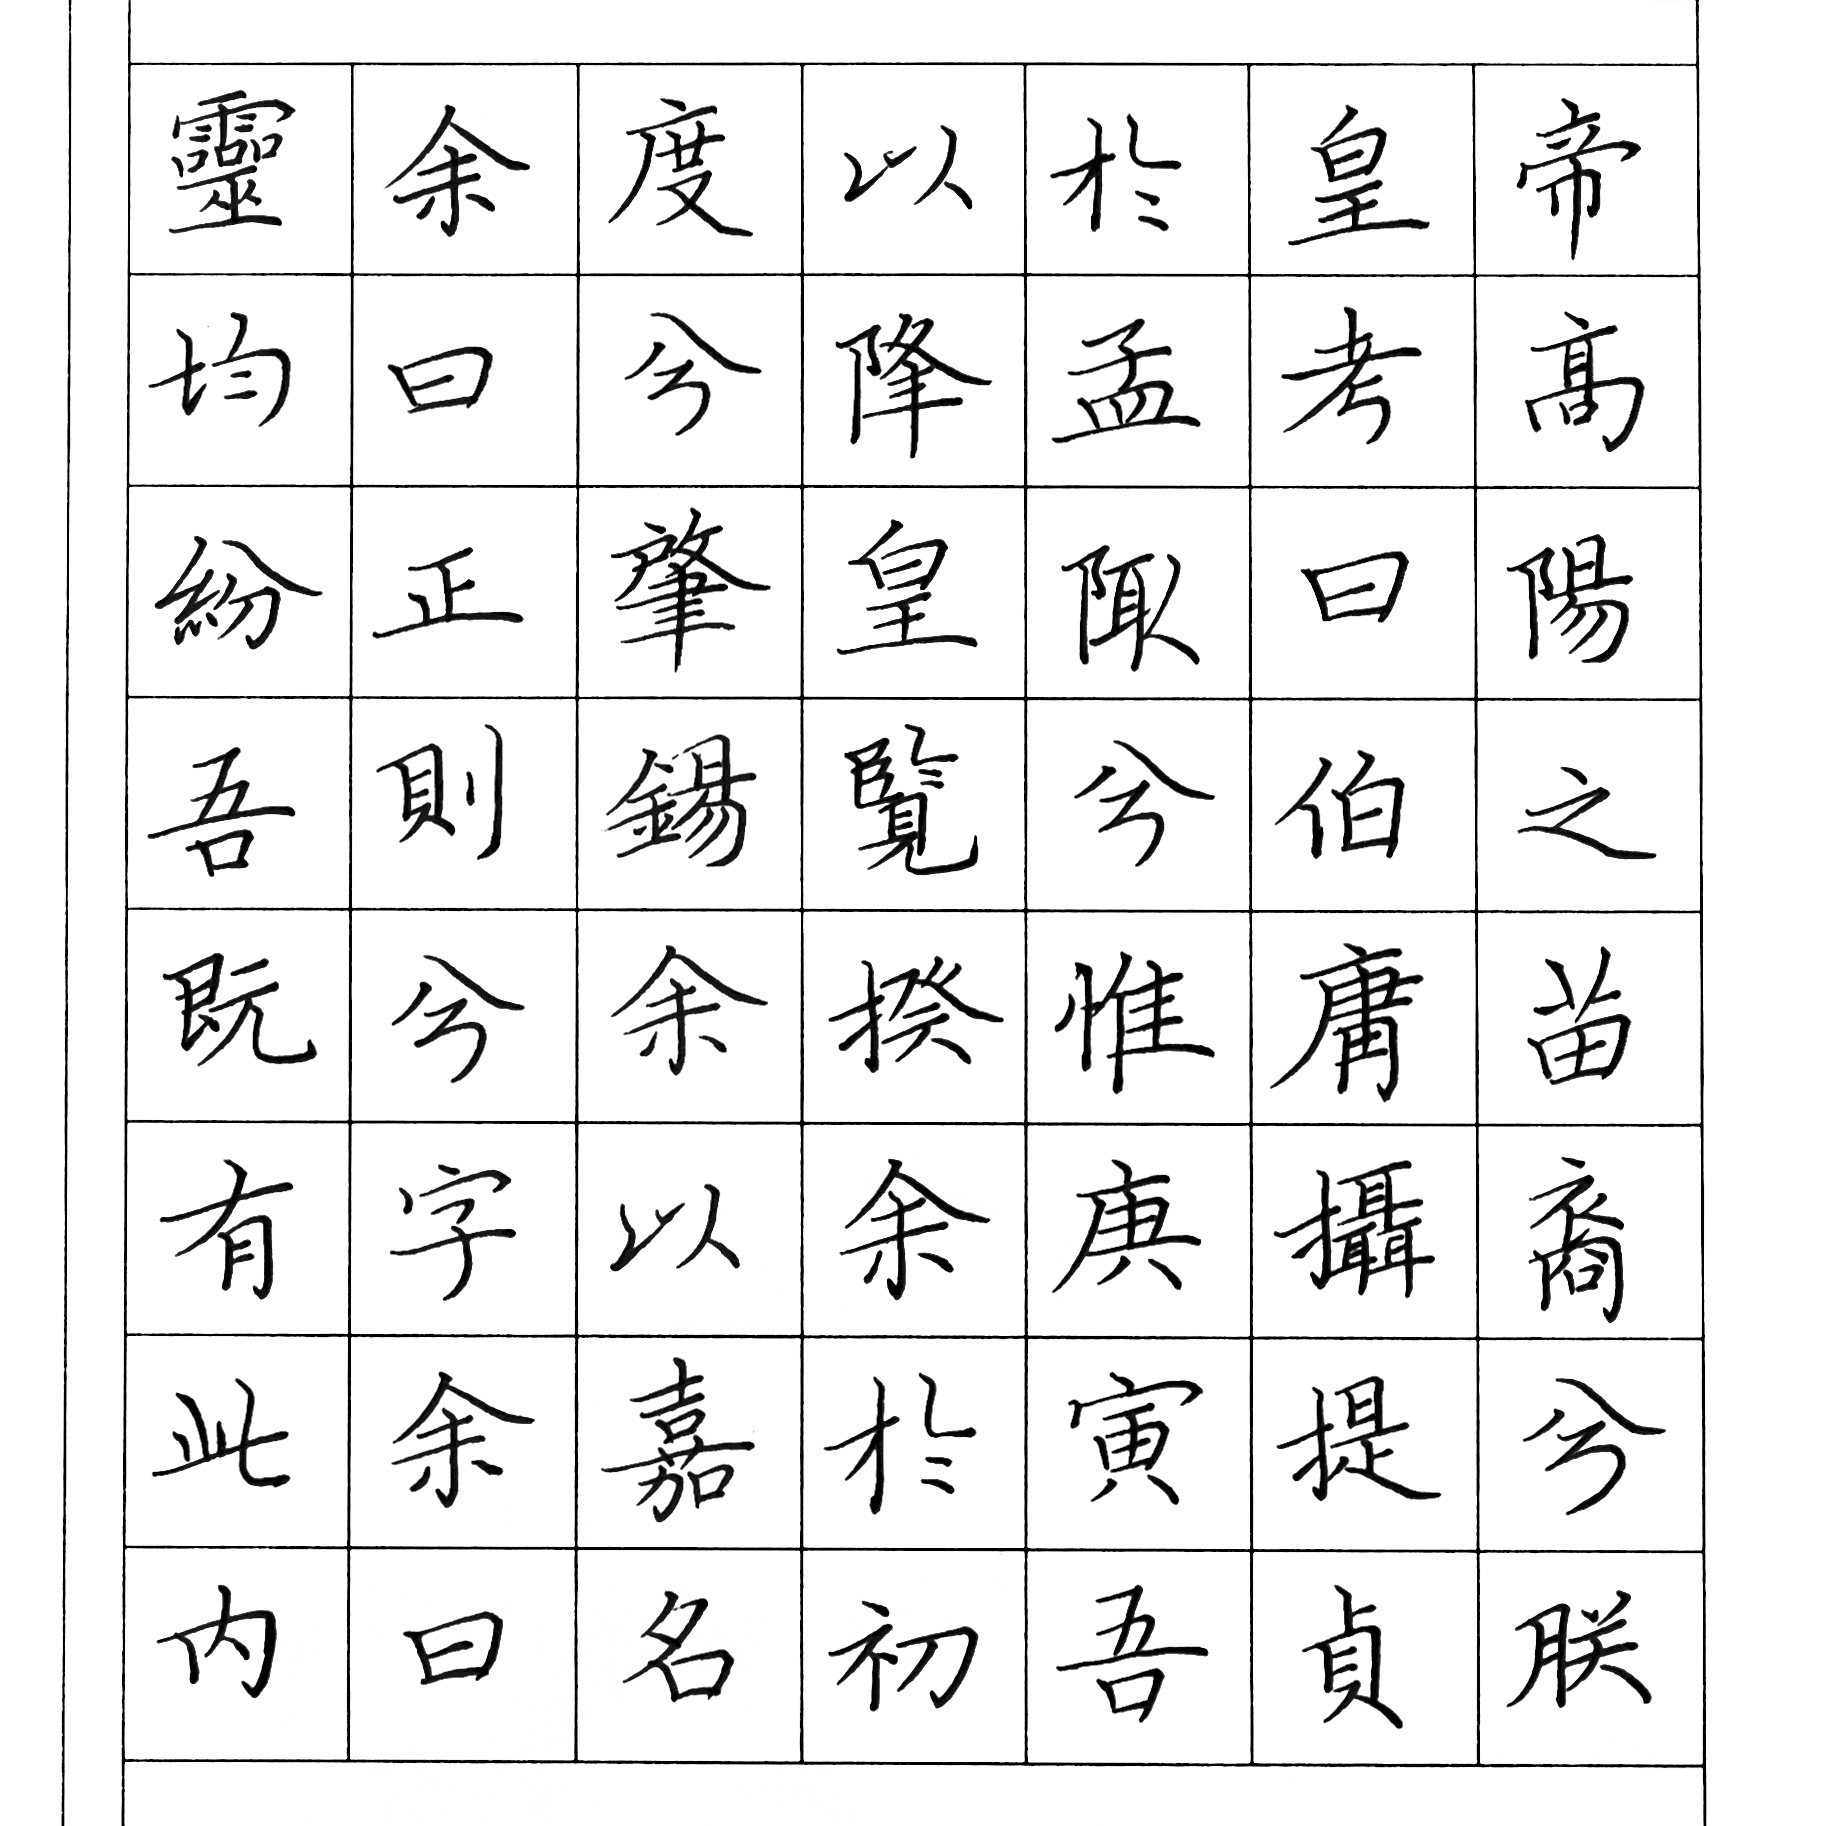 帝高陽之苗裔兮朕
皇考曰伯庸攝提貞
於孟陬兮惟庚寅吾
以降皇覽揆余於初
度兮肇錫余以嘉名
余曰正則兮字余曰
靈均紛吾既有此内